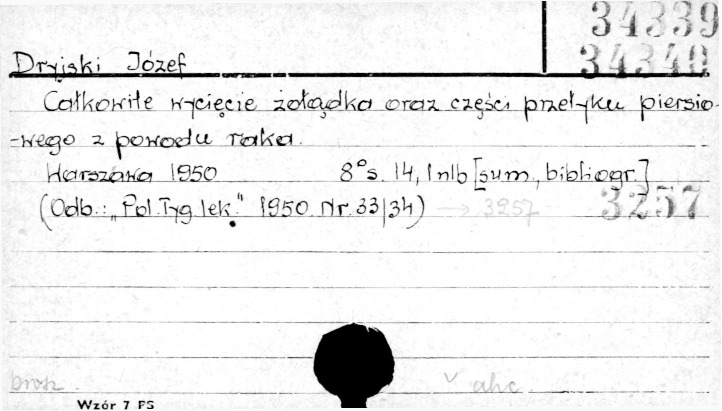 34339
34340
Dryjski Józef
Całkowite wycięcie żołądka oraz części przełyku piersio-
-wego z powodu raka.
Warszawa 1950 8° s. 14, 1 nlb [sum., bibliogr.]
(Odb.: „Pol. Tyg. lek." 1950 Nr. 33/34) → 3257 3257
brosz.
Wzór 7 PS